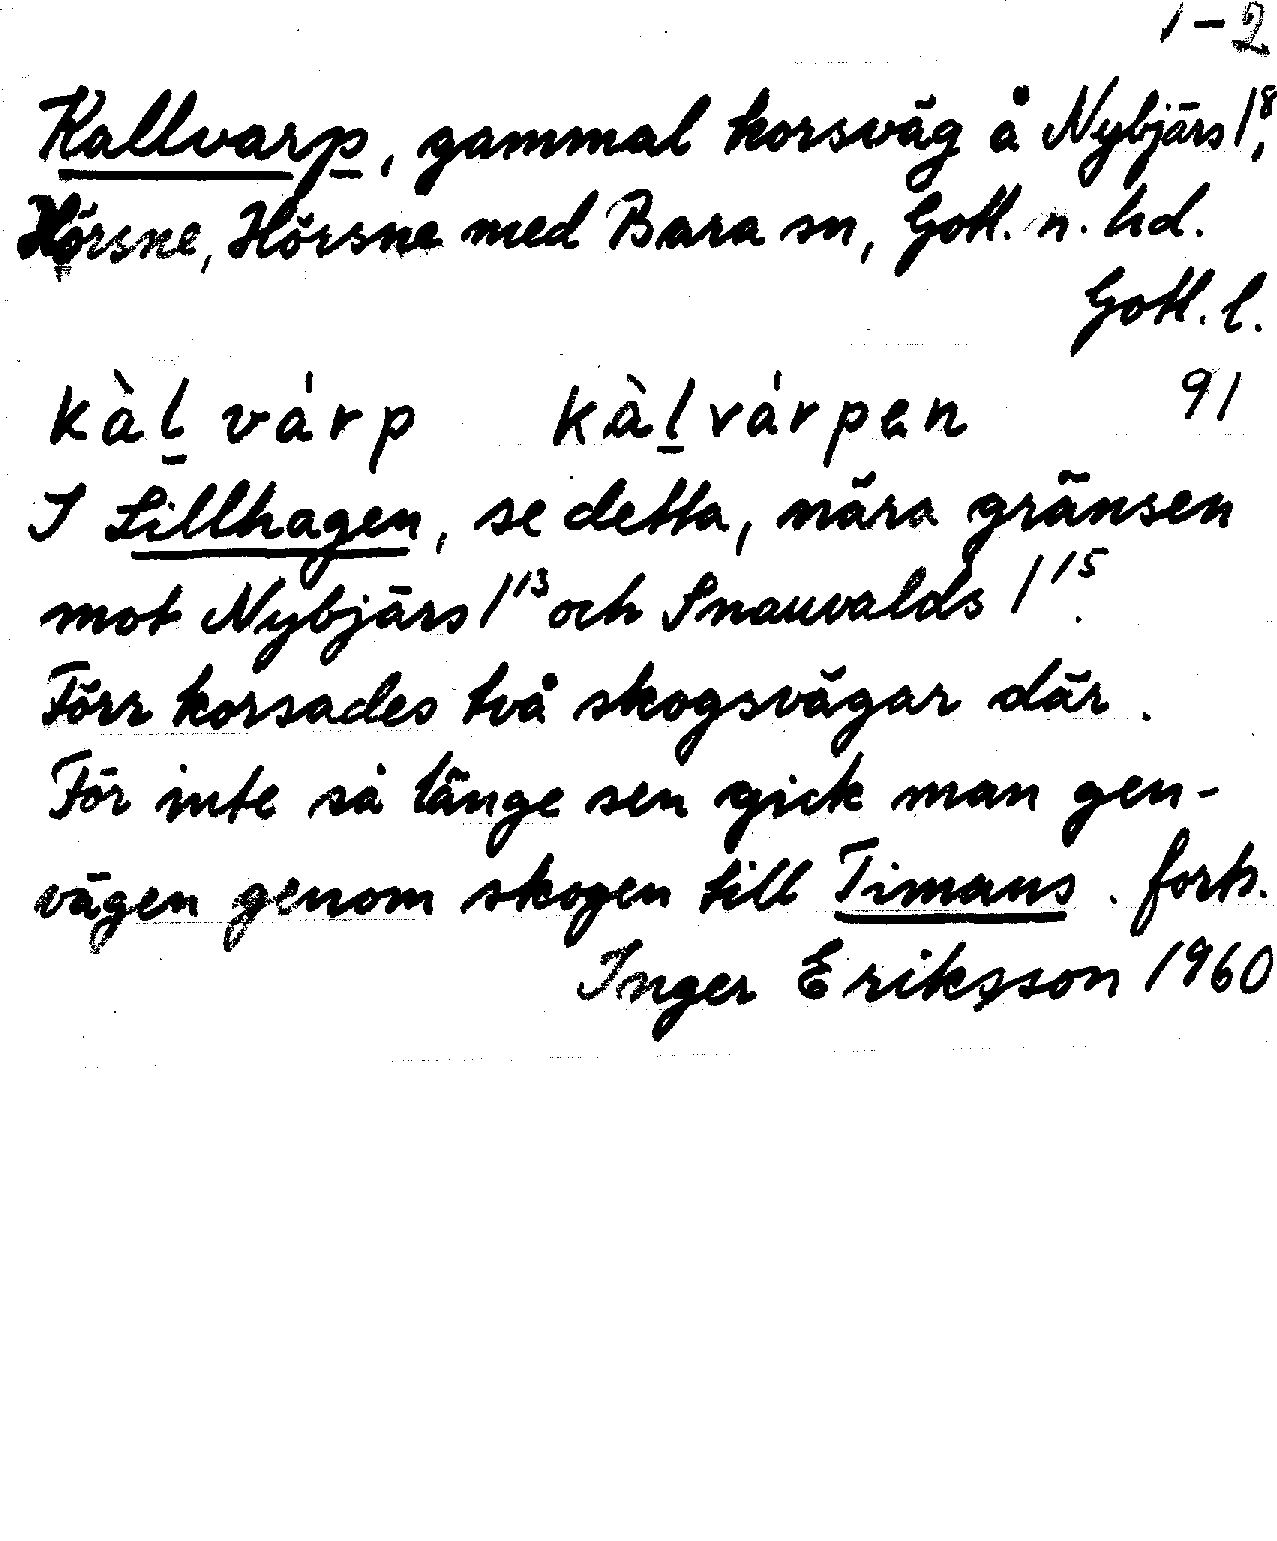 1-2
Kallvarp, gammal korsväg å Nybjärs 1⁸,
Hörsne, Hörsne med Bara sn, Gotl. n. hd.
Gotl. l.
kàl̲ várp kàl̲várpen 91
I Lillhagen, se detta, nära gränsen
mot Nybjärs 1¹³ och Snauvalds 1¹⁵.
Förr korsades två skogsvägar där.
För inte så länge sen gick man gen-
vägen genom skogen till Timans. forts.
Inger Eriksson 1960